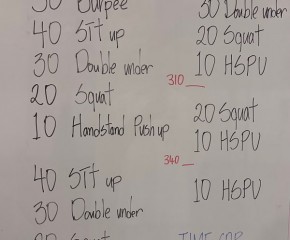 50 Burpee
40 SIT up
30 Double under
20 Squat
10 Handstand Pushup
40 SIT up
30 Double under
20 Squat
30 Double under
20 Squat
10 HSPU
310
20 Squat
10 HSPU
340
10 HSPU
TIME CAP